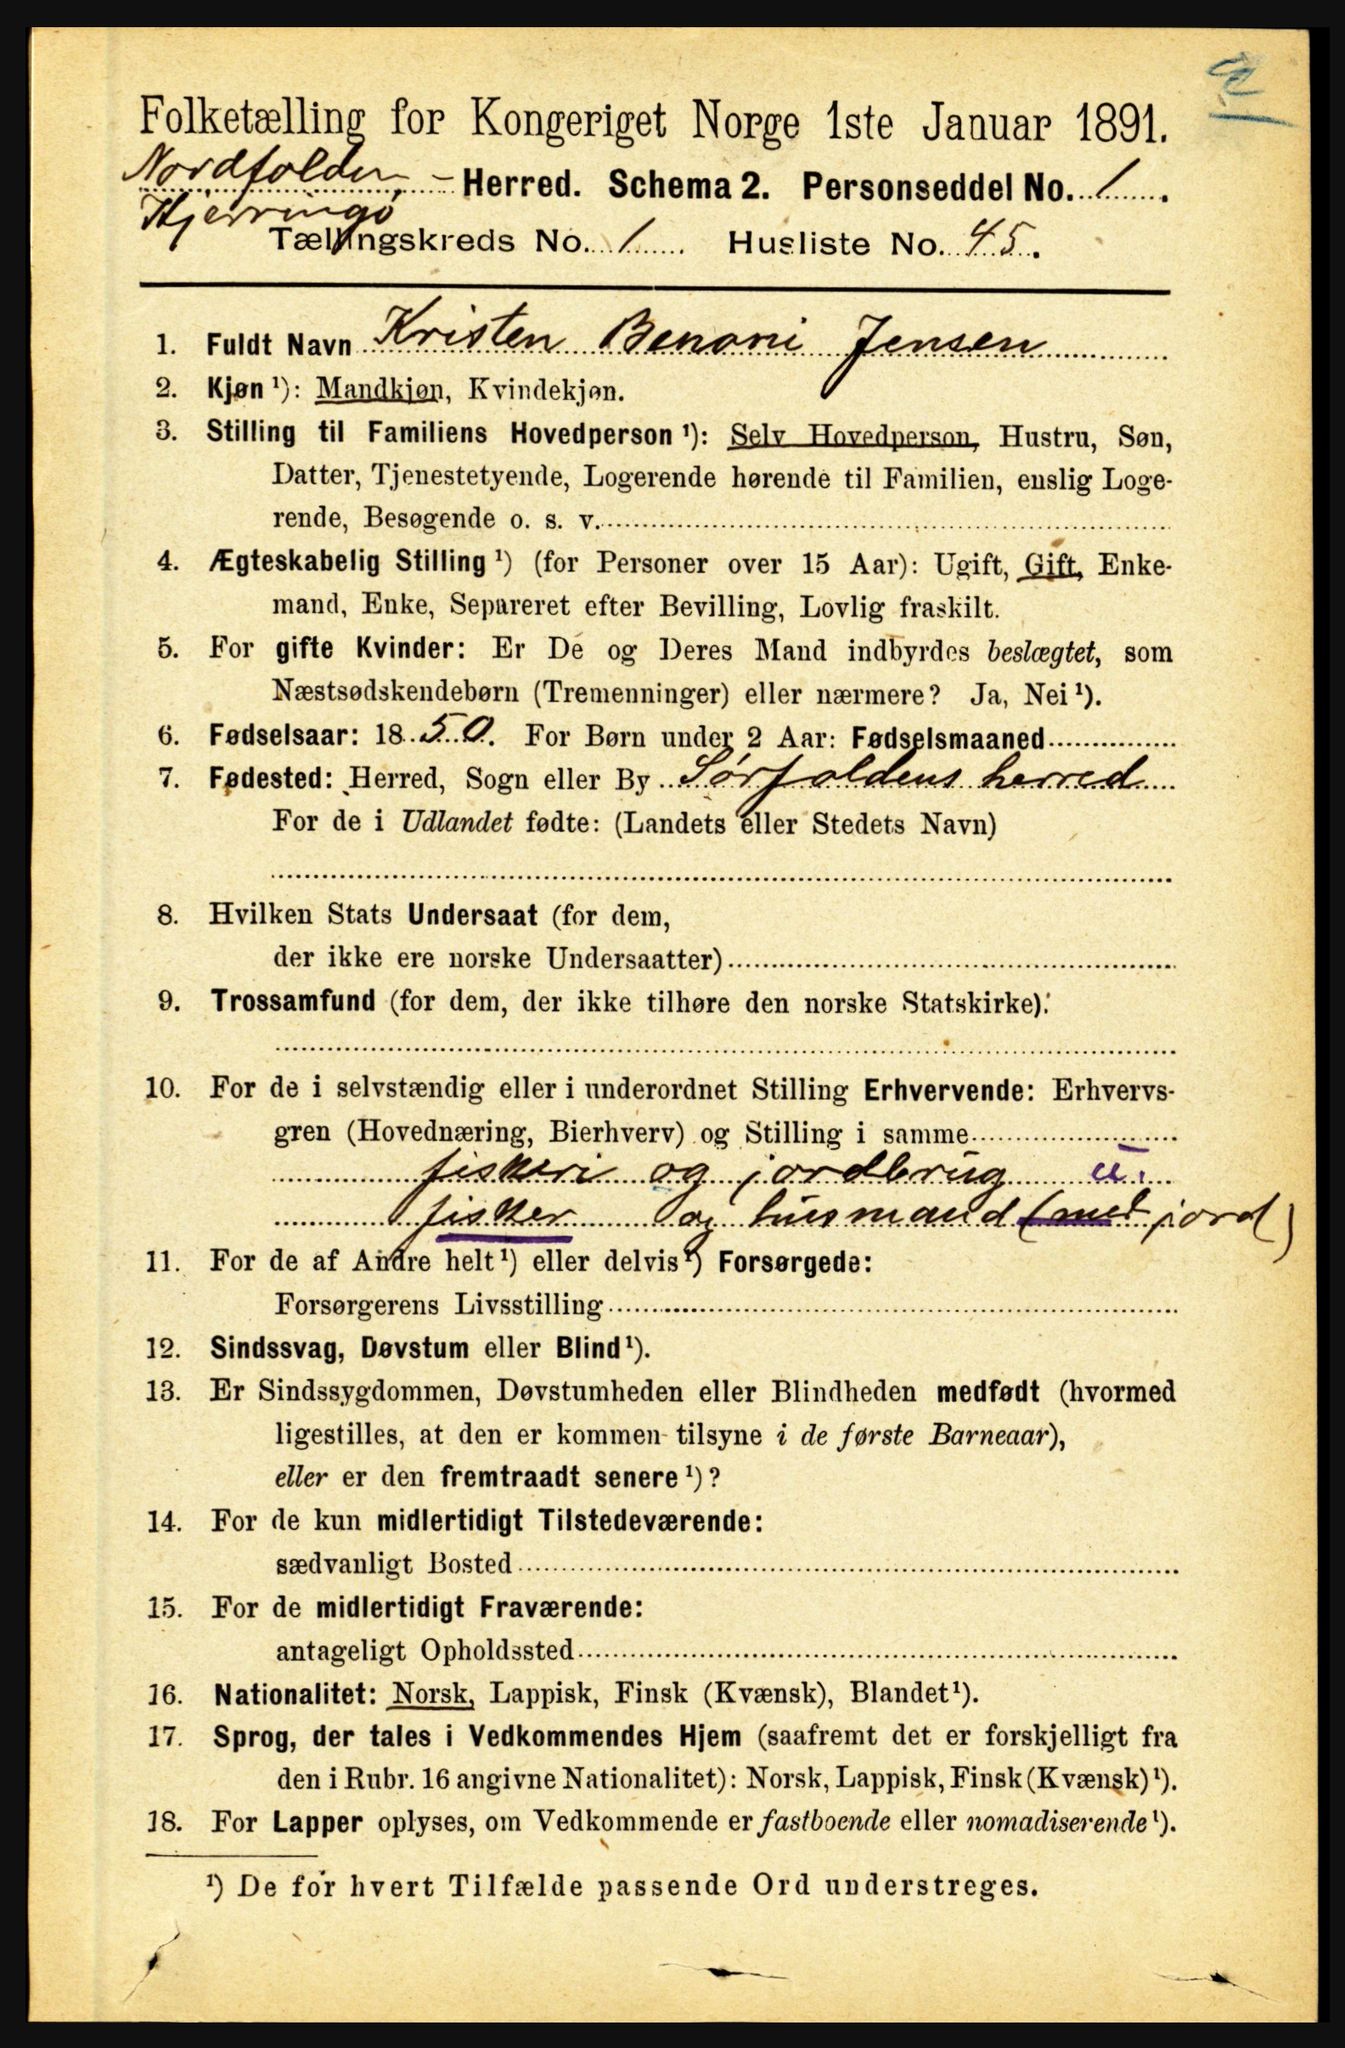 Folketælling for Kongeriget Norge 1ste Januar 1891.
Nordfolden - Herred. Schema 2. Personseddel No. 1.
Kjerringø
Tællingskreds No. 1. Husliste No. 45.
1. Fuldt Navn Kristen Benoni Jensen
2. Kjøn ¹): Mandkjøn, Kvindekjøn.
3. Stilling til Familiens Hovedperson ¹): Selv Hovedperson, Hustru, Søn,
Datter, Tjenestetyende, Logerende hørende til Familien, enslig Loge-
rende, Besøgende o. s. v.
4. Ægteskabelig Stilling ¹) (for Personer over 15 Aar): Ugift, Gift, Enke-
mand, Enke, Separeret efter Bevilling, Lovlig fraskilt.
5. For gifte Kvinder: Er De og Deres Mand indbyrdes beslægtet, som
Næstsødskendebørn (Tremenninger) eller nærmere? Ja, Nei ¹).
6. Fødselsaar: 1850. For Børn under 2 Aar: Fødselsmaaned
7. Fødested: Herred, Sogn eller By Sørfoldens herred
For de i Udlandet fødte: (Landets eller Stedets Navn)
8. Hvilken Stats Undersaat (for dem,
der ikke ere norske Undersaatter)
9. Trossamfund (for dem, der ikke tilhøre den norske Statskirke).
10. For de i selvstændig eller i underordnet Stilling Erhvervende: Erhvervs-
gren (Hovednæring, Bierhverv) og Stilling i samme
fiskeri og jordbrug u.
fisker og husmand (med jord)
11. For de af Andre helt ¹) eller delvis ¹) Forsørgede:
Forsørgerens Livsstilling
12. Sindssvag, Døvstum eller Blind ¹).
13. Er Sindssygdommen, Døvstumheden eller Blindheden medfødt (hvormed
ligestilles, at den er kommen tilsyne i de første Barneaar),
eller er den fremtraadt senere ¹)?
14. For de kun midlertidigt Tilstedeværende:
sædvanligt Bosted
15. For de midlertidigt Fraværende:
antageligt Opholdssted
16. Nationalitet: Norsk, Lappisk, Finsk (Kvænsk), Blandet ¹).
17. Sprog, der tales i Vedkommendes Hjem (saafremt det er forskjelligt fra
den i Rubr. 16 angivne Nationalitet): Norsk, Lappisk, Finsk (Kvænsk) ¹).
18. For Lapper oplyses, om Vedkommende er fastboende eller nomadiserende ¹).
¹) De for hvert Tilfælde passende Ord understreges.